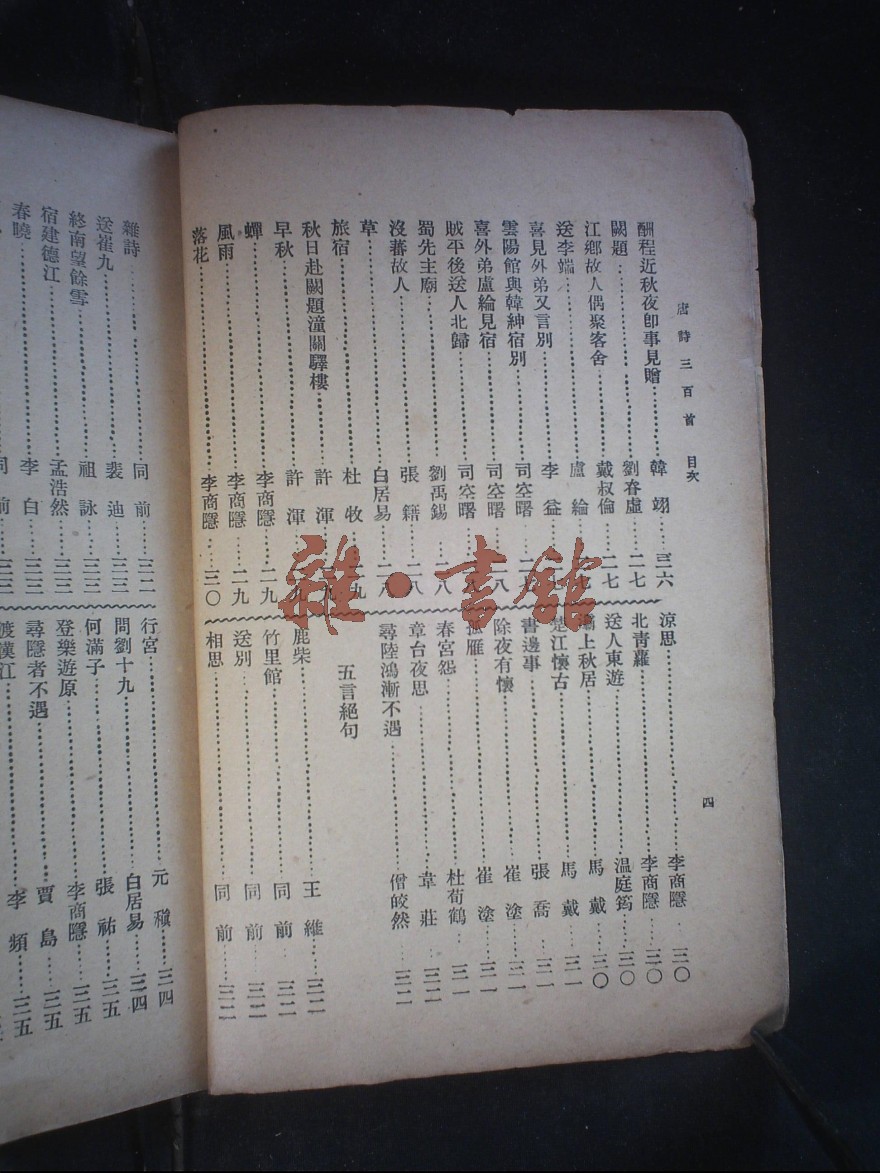 唐詩三百首 目次
四
酬程近秋夜卽事見贈 韓翃 二六
闕題 劉眘虛 二七
江鄉故人偶聚客舍 戴叔倫 二七
送李端 盧綸
喜見外弟又言別 李益
雲陽館與韓紳宿別 司空曙
喜外弟盧綸見宿 司空曙
賊平後送人北歸 司空曙
蜀先主廟 劉禹錫 二八
沒蕃故人 張籍 二八
草 白居易 二八
旅宿 杜牧
秋日赴闕題潼關驛樓 許渾
早秋 許渾
蟬 李商隱 二九
風雨 李商隱 二九
落花 李商隱 三〇
涼思 李商隱 三〇
北靑蘿 李商隱 三〇
送人東遊 温庭筠 三〇
灞上秋居 馬戴 三〇
楚江懷古 馬戴 三一
書邊事 張喬 三一
除夜有懷 崔塗 三一
孤雁 崔塗 三一
春宮怨 杜荀鶴 三一
章台夜思 韋莊 三二
尋陸鴻漸不遇 僧皎然 三二
五言絕句
鹿柴 王維 三二
竹里館 同前 三二
送別 同前 三二
相思 同前 三二
雜詩 同前 三二
送崔九 裴迪 三三
終南望餘雪 祖詠 三三
宿建德江 孟浩然 三三
春曉 同前 三三
李白 三三
行宮 元稹 三四
問劉十九 白居易 三四
何滿子 張祜 三五
登樂遊原 李商隱 三五
尋隱者不遇 賈島 三五
渡漢江 李頻 三五
雜·書館